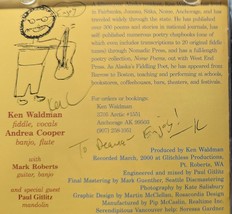 Enjoy!
in Fairbanks, Juneau, Sitka, Nome,
traveled widely through the state. He has published
over 300 poems and stories in national journals, has
self-published numerous poetry chapbooks (one of
which includes transcriptions of 20 original fiddle tunes)
through Nomadic Press, and has a full-length
poetry collection, Nome Poems, out with West End
Press. As Alaska's Fiddling Poet, he has appeared from
Barrow to Boston, teaching and performing at schools,
bookstores, coffeehouses, theaters, and festivals.
Ken Waldman
fiddle, vocals
Andrea Cooper
banjo, flute
with
Mark Roberts
guitar, banjo
and special guest
Paul Glititz
mandolin
For orders or bookings:
Ken Waldman
3705 Arctic #1551
Anchorage AK 99503
(907) 258-1051
To Deanna Enjoy!
Produced by Ken Waldman
Recorded March, 2000 at Glitchless Productions,
Pt. Roberts, WA
Engineered and mixed by Paul Glititz
Final Mastering by Mark Guenther, Seattle Discmastering
Photography by Kate Salisbury
Graphic Design by Martin McClellan, Roxoradio Design
Manufactured by Pip McCaslin, Rockfire Inc.
Serendipitous Vermont help: Scissors Gardner